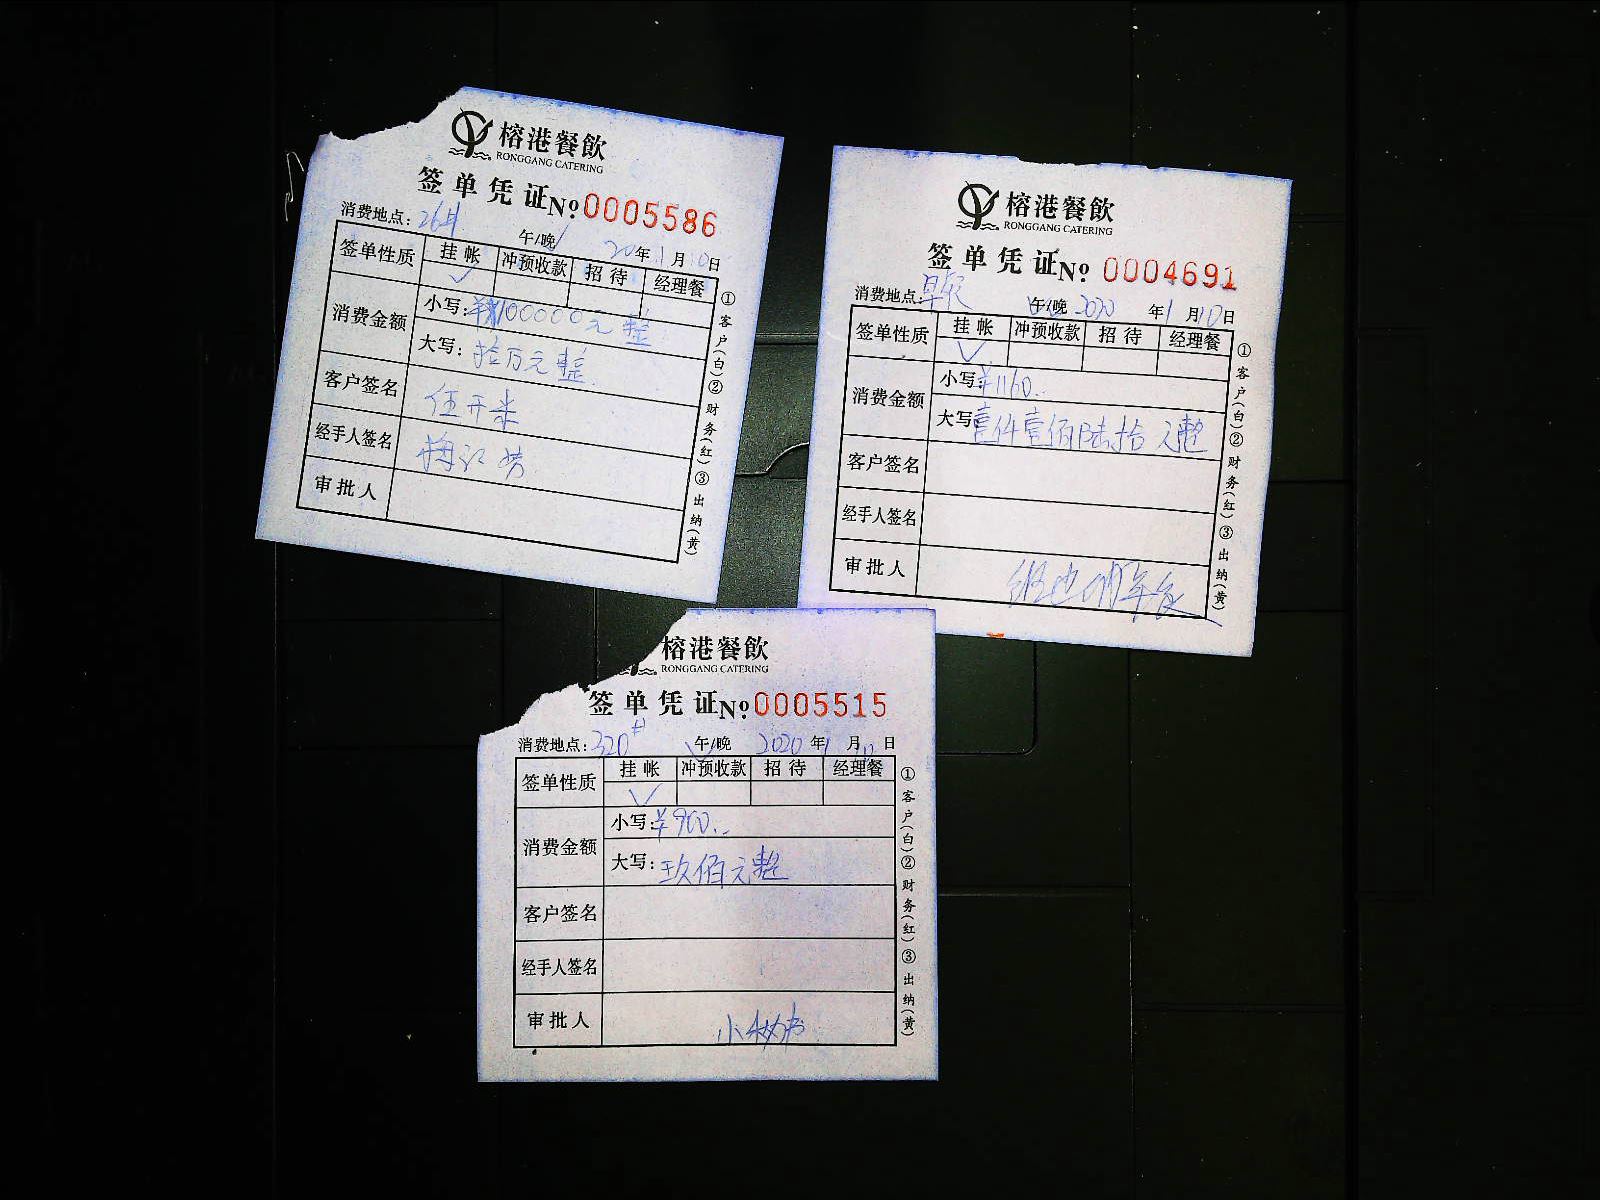 榕港餐飲
RONGGANG CATERING
签单凭证№0005586
消费地点: 26# 午/晚 20年1月10日
签单性质 挂帐 冲预收款 招待 经理餐
消费金额 小写:¥100000元整
大写:拾万元整
客户签名 伍开米
经手人签名 梅江
审批人
①客户(白)②财务(红)③出纳(黄)
榕港餐飲
RONGGANG CATERING
签单凭证№ 0004691
消费地点: 午/晚 2020年1月10日
签单性质 挂帐 冲预收款 招待 经理餐
消费金额 小写:¥1160..
大写:壹仟壹佰陆拾元整
客户签名
经手人签名
审批人
①客户(白)②财务(红)③出纳(黄)
榕港餐飲
RONGGANG CATERING
签单凭证№0005515
消费地点: 320# 午/晚 2020年1月10日
签单性质 挂帐 冲预收款 招待 经理餐
消费金额 小写:¥900..
大写:玖佰元整
客户签名
经手人签名
审批人
①客户(白)②财务(红)③出纳(黄)